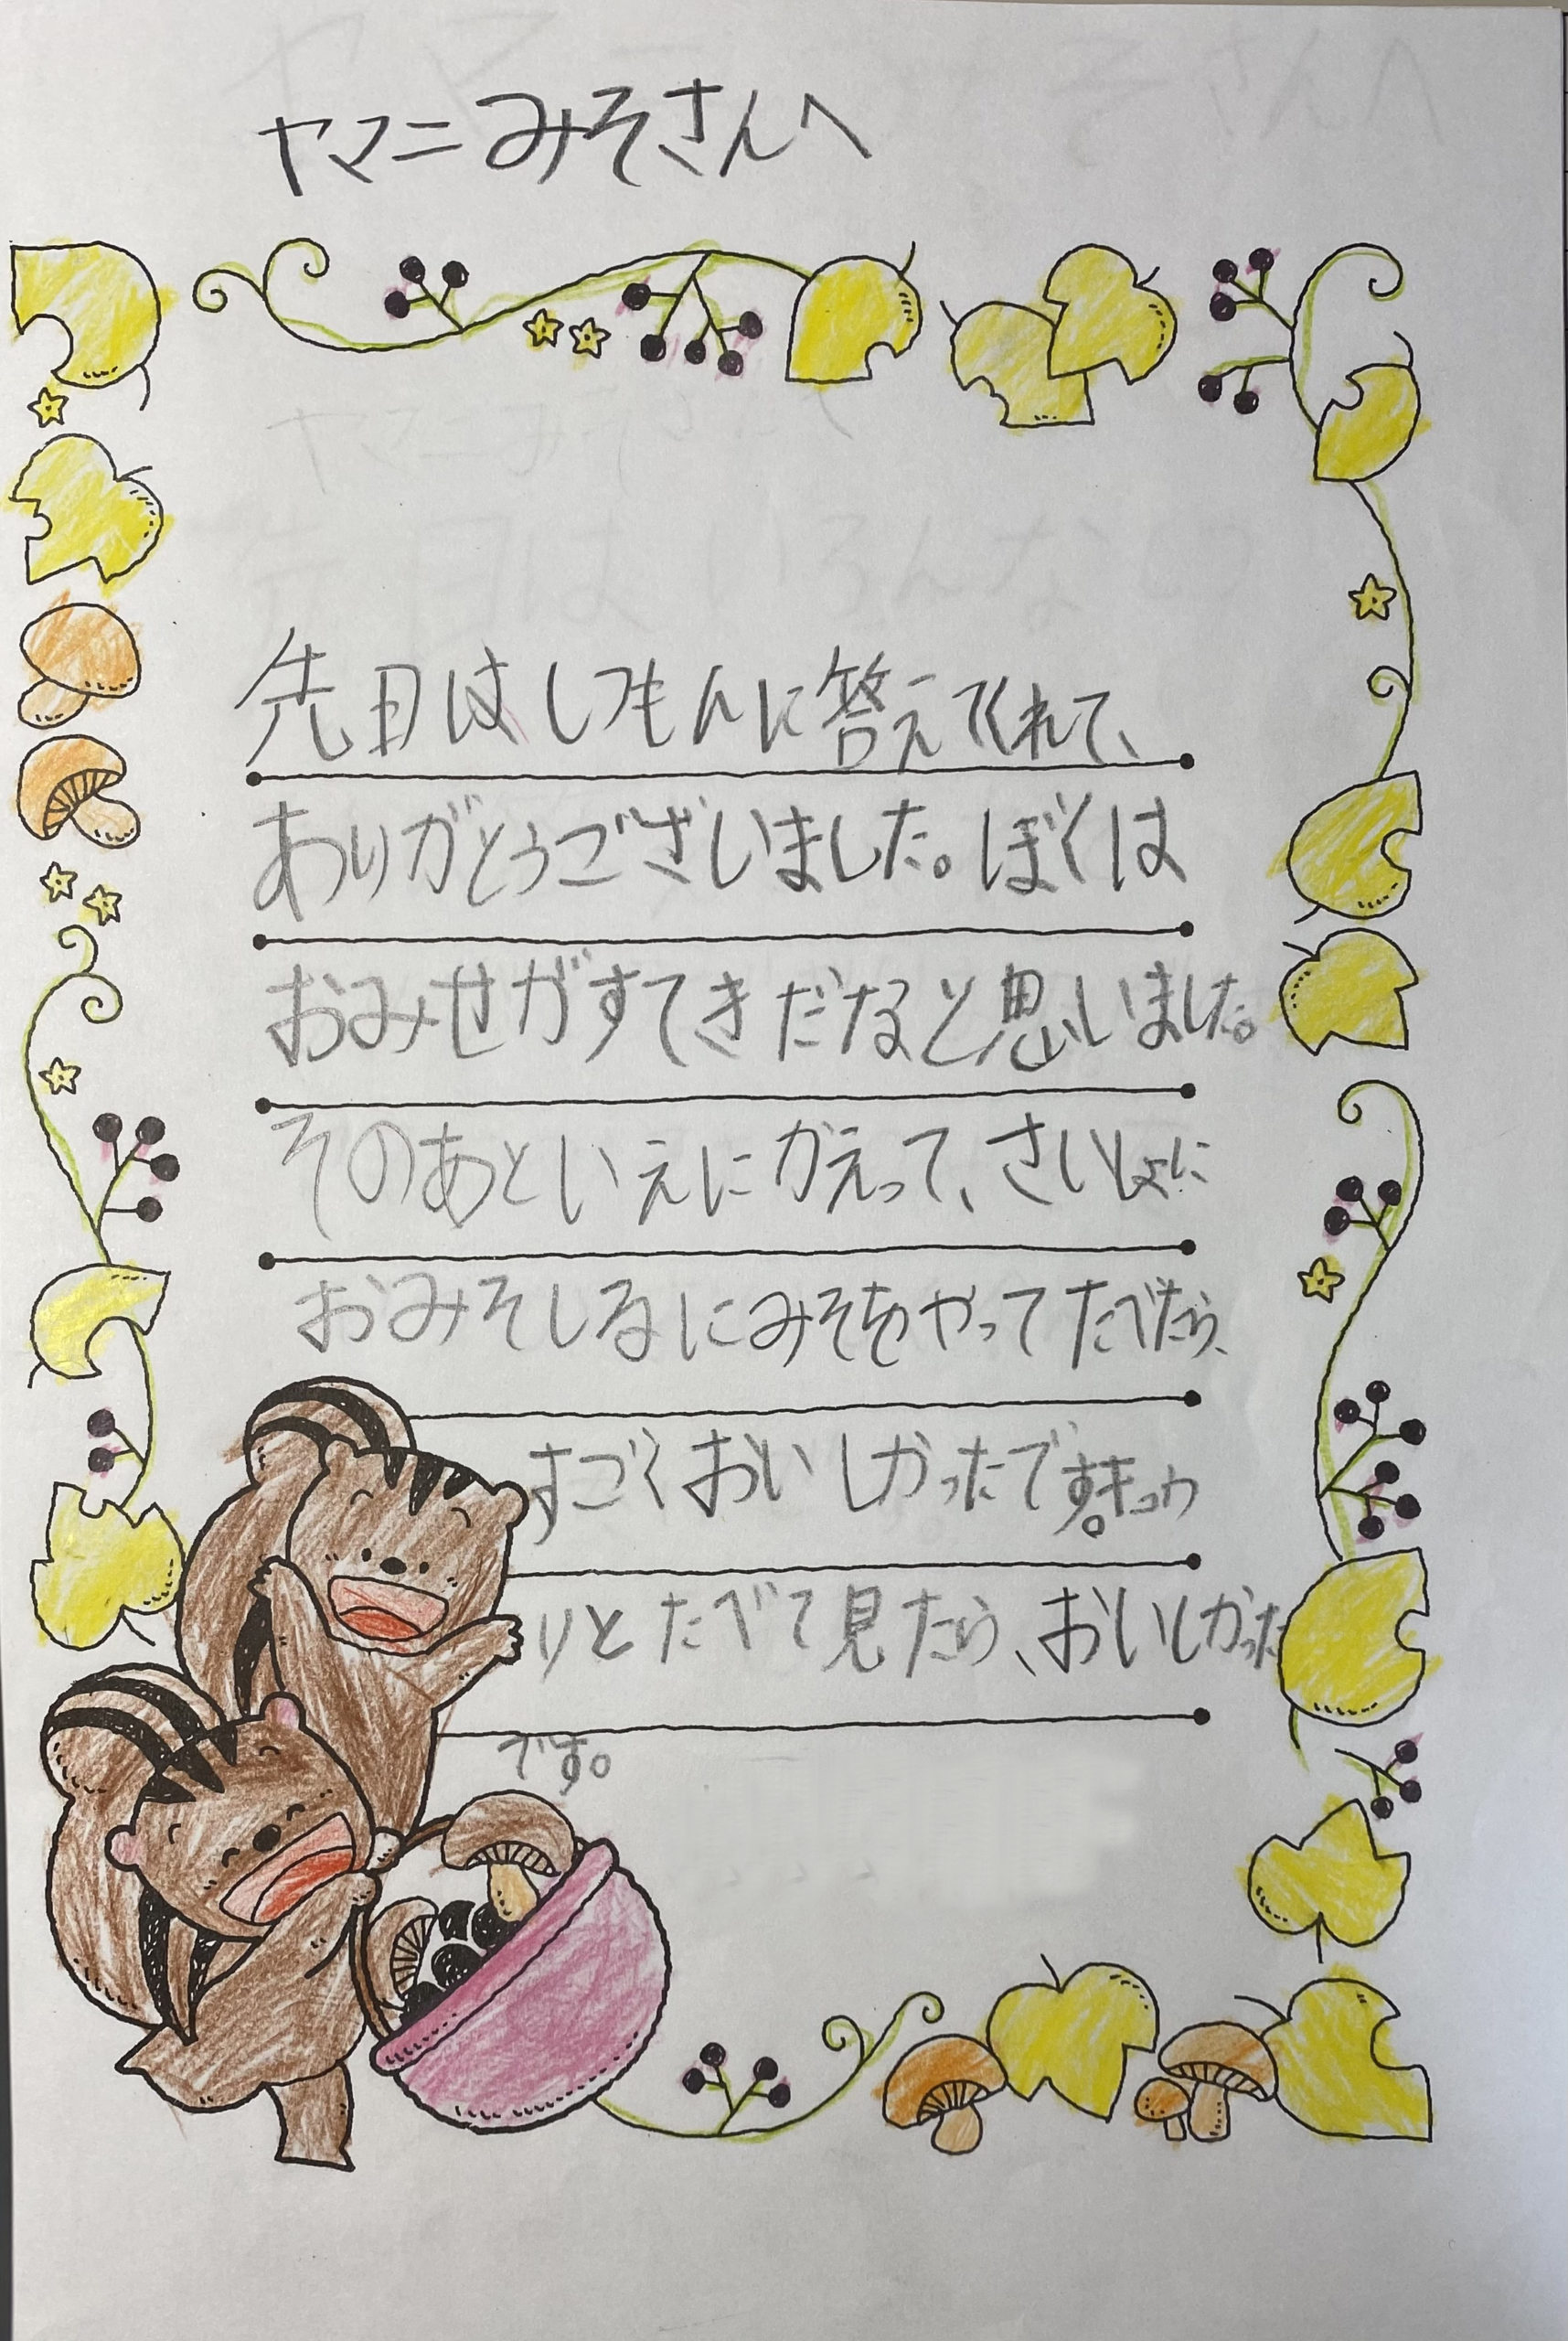 ヤマニみそさんへ
先日はしつもんに答えてくれて、
ありがとうございました。ぼくは
おみせがすてきだなと思いました。
そのあといえにかえって、さいしょに
おみそしるにみそをやってたべたら、
すごくおいしかったです。キュウ
りとたべて見たら、おいしかった
です。